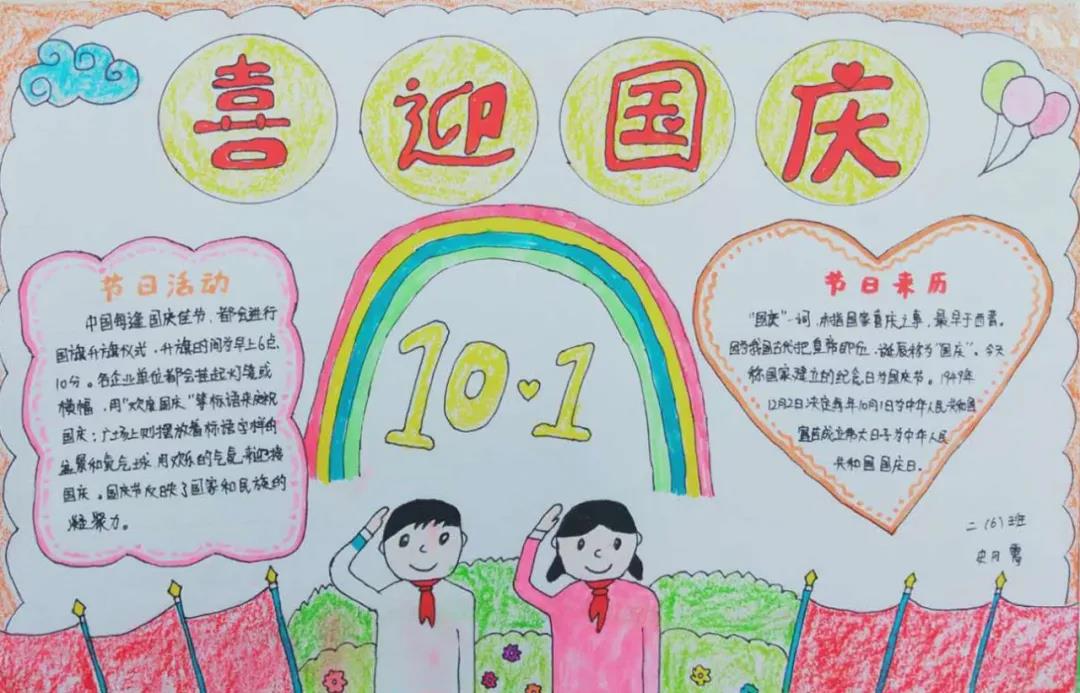 喜迎国庆
节日活动
中国每逢国庆佳节，都会进行
国旗升旗仪式，升旗的间为早上6点
10分。各企业单位都会挂起灯笼或
横幅，用"欢度国庆"等标语来庆祝
国庆；广场上则摆放着标语字样的
盆景和氢气球，用欢乐的气氛来迎接
国庆。国庆节反映了国家和民族的
凝聚力。
10·1
节日来历
"国庆"一词，本指国家喜庆之事，最早于西晋。
因为我国古代把皇帝即位、诞辰称为"国庆"。今天
称国家建立的纪念日为国庆节。1949年
12月2日决定每年10月1日为中华人民共和国
宣告成立伟大日子为中华人民
共和国国庆日。
二（6）班
史月霞